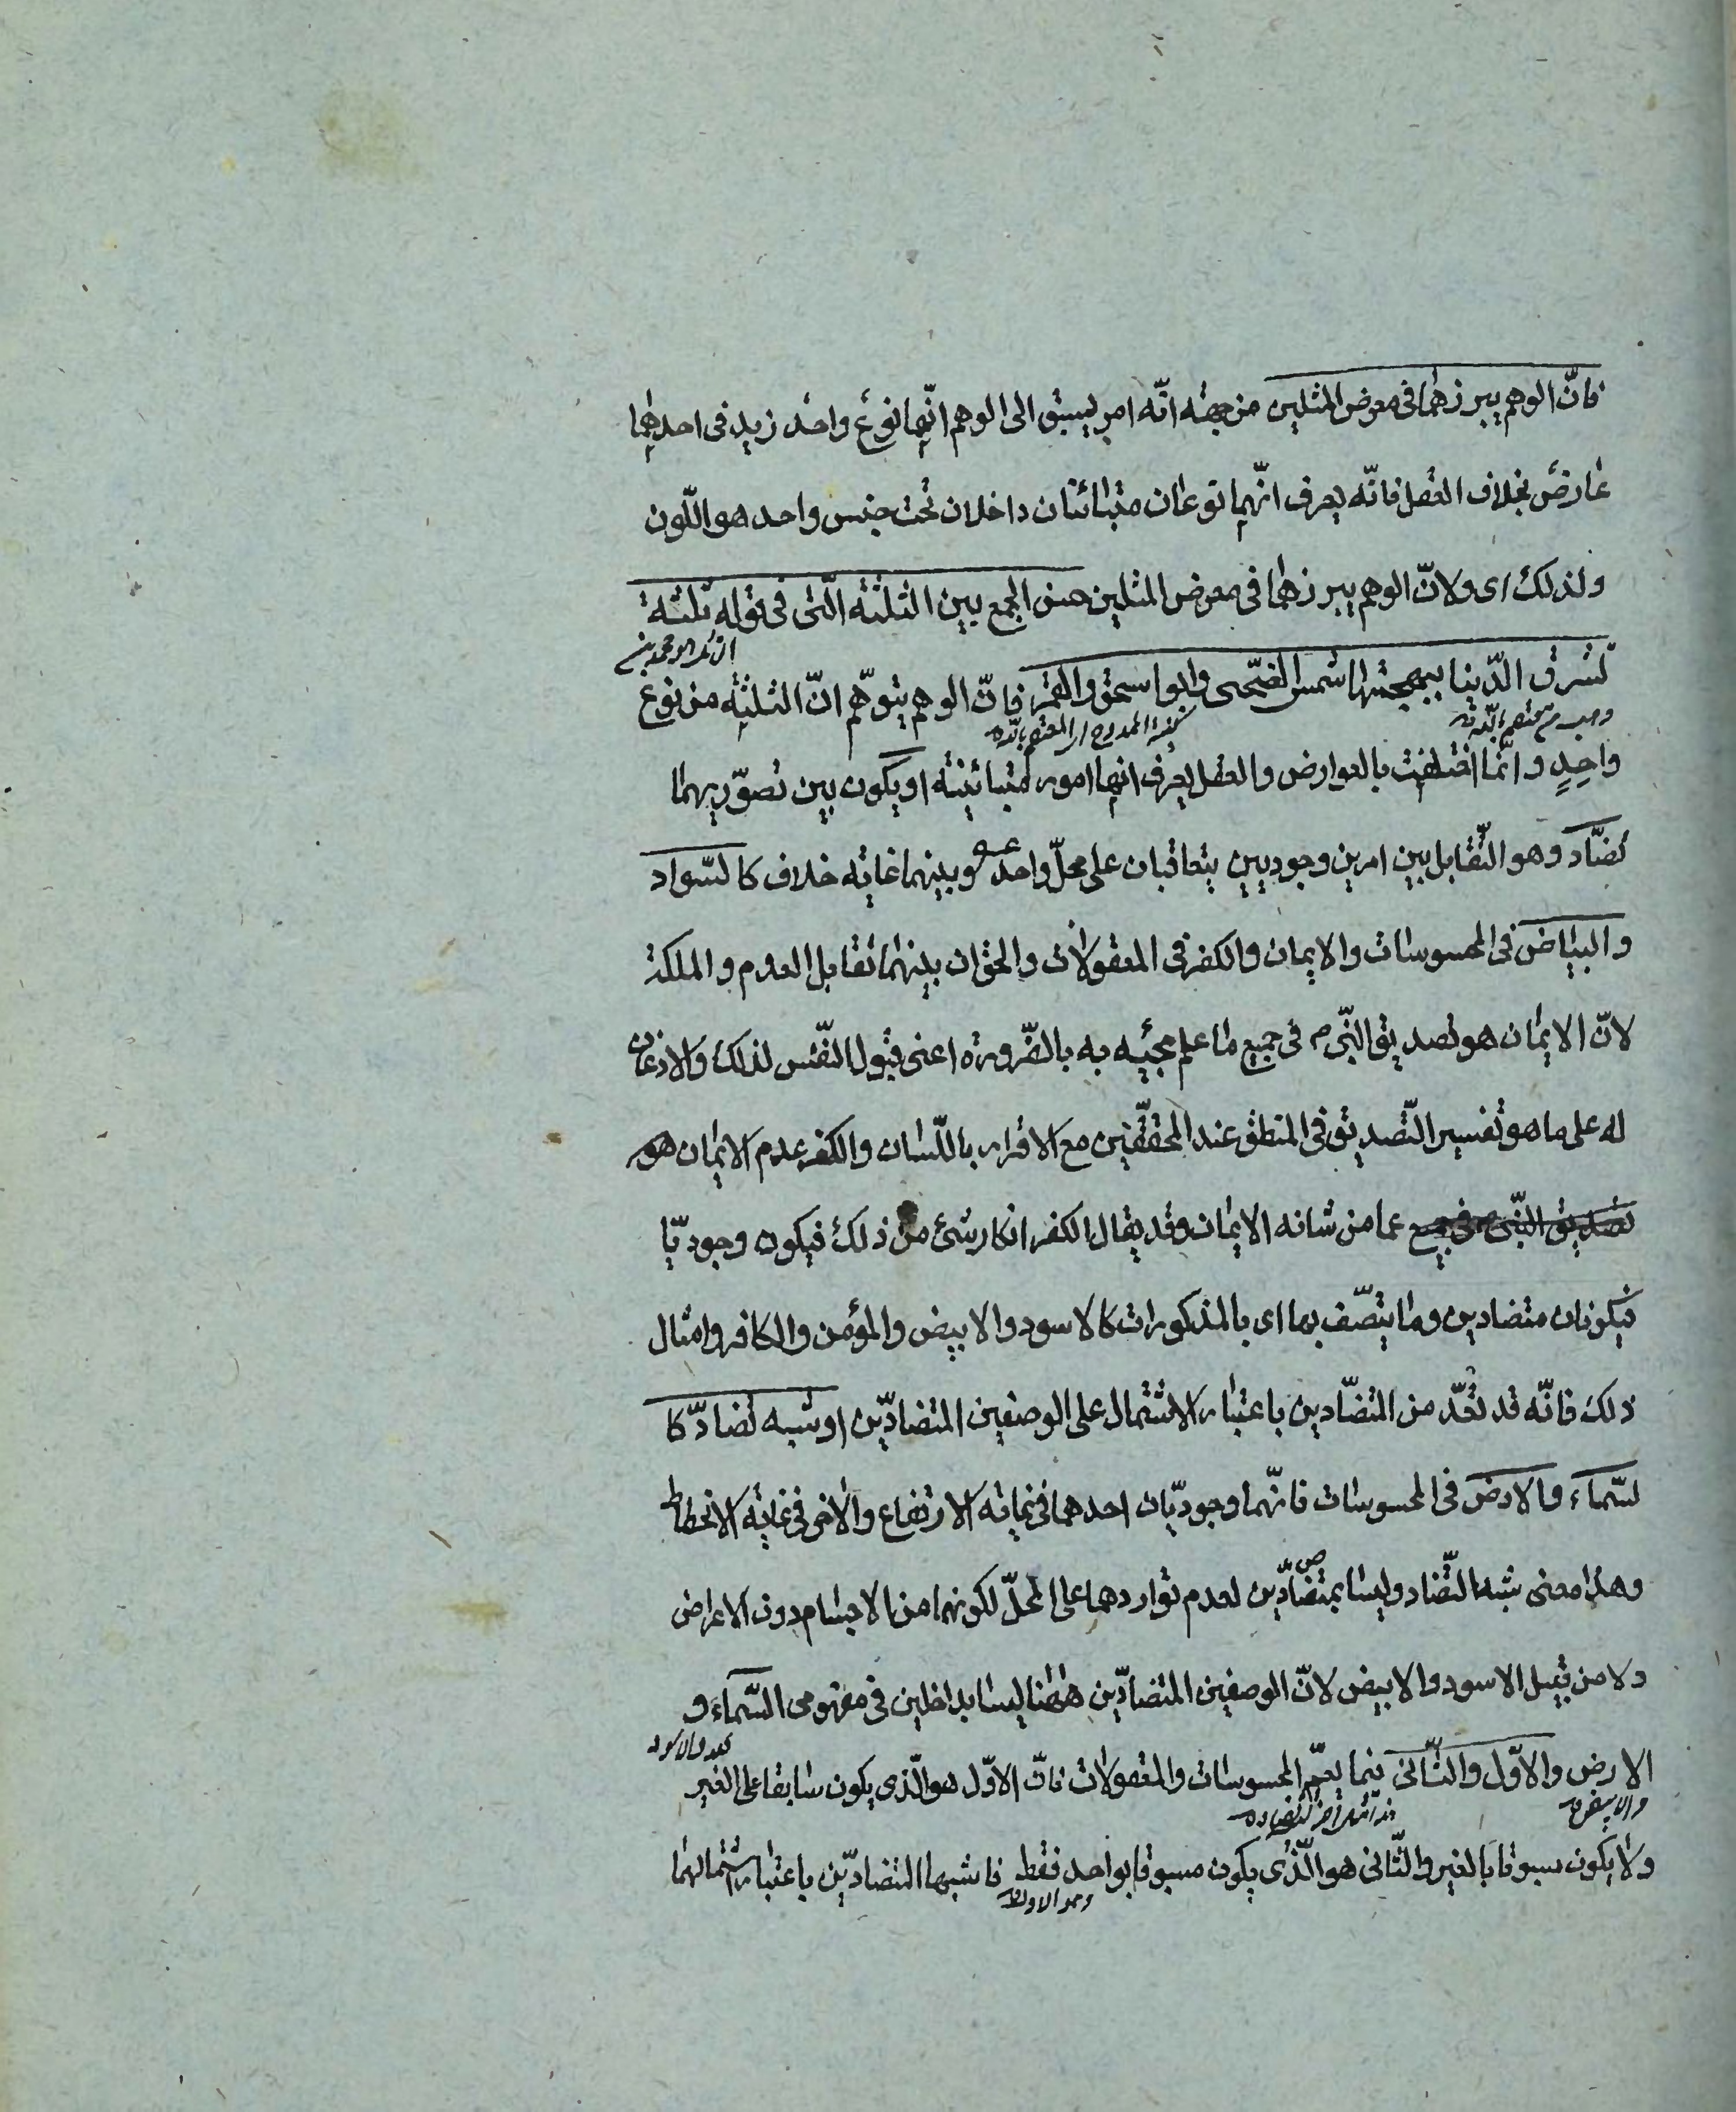 فانّ الوهم يبرزهما فى معرض المثلين من جهته انّه امر يسبق الى الوهم انّهما نوع واحد زيد فى احدهما
عارض بخلاف العقل فانّه يعرف انّهما نوعان متبائنان داخلان تحت جنس واحد هو اللّون
ولذلك اى ولانّ الوهم يبرزهما فى معرض المثلين حسن الجمع بين الثلثه الّتى فى قوله ثلثة
تشرق الدّنيا ببهجتها شمس الضّحى وابو اسحق والقمر فانّ الوهم يتوهّم انّ الثلثه من نوع
كنية الممدوح اى المعتصم بالله
واحدٍ وانّما اختلفت بالعوارض والعقل يعرف انها امور متبائينة او يكون بين تصوّريهما
تضّاد وهو التّقابل بين امرين وجوديين يتعاقبان على محلّ واحد وبينهما غاية خلاف كالسّواد
والبياض فى المحسوسات والايمان والكفر فى المعقولات والحق ان بينهما تقابل العدم والملكة
لانّ الايمان هو تصديق النّبى م فى جميع ما علم مجيئه به بالضّرورة اعنى قبول النّفس لذلك والاذعان
له على ما هو تفسير التّصديق فى المنطق عند المحقّقين مع الاقرار باللّسان والكفر عدم الايمان هو
تصديق النّبى م فى جميع عما من شانه الايمان وقد يقال الكفر انكار شئ من ذلك فيكون وجوديّا
فيكونان متضادين وما يتصّف بها اى بالمذكورات كالاسود والابيض والمؤمن والكافر وامثال
ذلك فانّه قد تعدّ من المتضّادين باعتبار الاشتمال على الوصفين المتضادّين او شبه تضادّ كا
لسّماء والارض فى المحسوسات فانّهما وجوديّان احدهما فى غاية الارتفاع والاخر فى غاية الانحطاط
وهذا معنى شبه التّضاد وليسا بمتضادّين لعدم تواردهما على المحلّ لكونهما من الاجسام دون الاعراض
ولا من قبيل الاسود والابيض لانّ الوصفين المتضادّين ههنا ليسا بداخلين فى مفهومى السّماء و
الارض والاوّل والثّانى فيما يعمّ المحسوسات والمعقولات فانّ الاوّل هو الّذى يكون سابقا على الغير
ولا يكون مسبوقا بالغير والثّانى هو الّذى يكون مسبوقا بواحد فقط فاشبها المتضادّين باعتبار اشتمالهما
وهو الاول